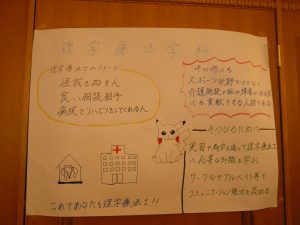 理学療法学科
理学療法士のイメージ
・怪我を治す人
・良い相談相手
・病院でリハビリをしてくれる人
その他にも
スポーツ分野だけでなく
介護施設や脳の障害がある方
にも貢献できる人材である
そうなるために
実習や勉学を通して理学療法士
に必要な知識を学ぶ
サークルやアルバイト等で
コミュニケーション能力を高める
これであなたも理学療法士!!